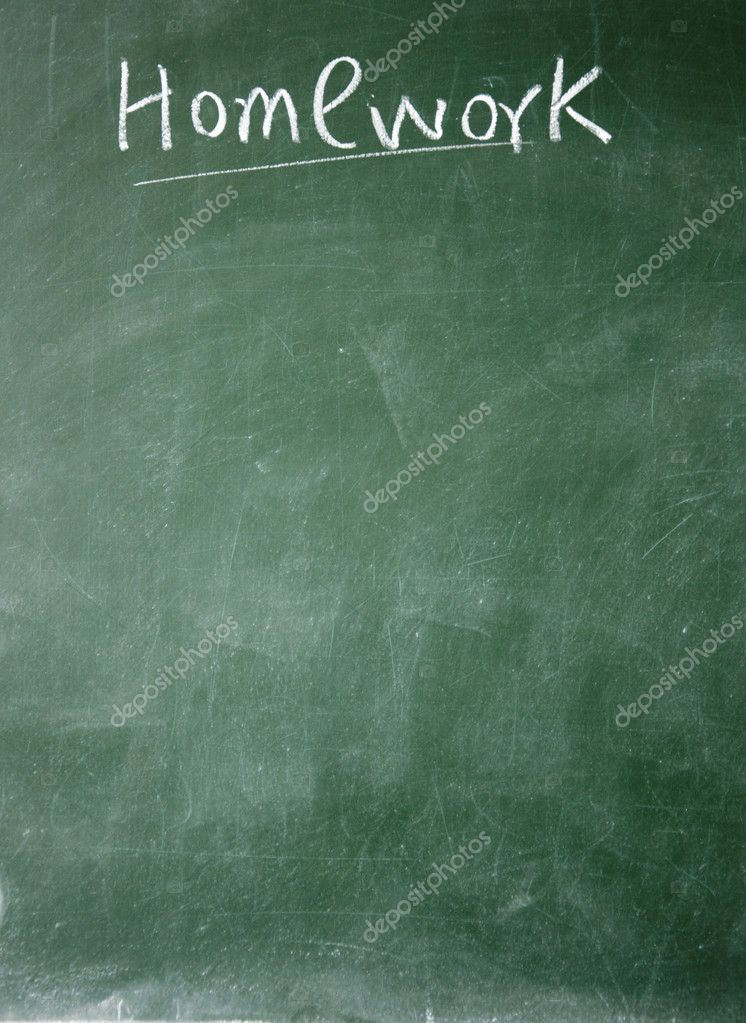 Homework
depositphotos
depositphotos
depositphotos
depositphotos
depositphotos
depositphotos
depositphotos